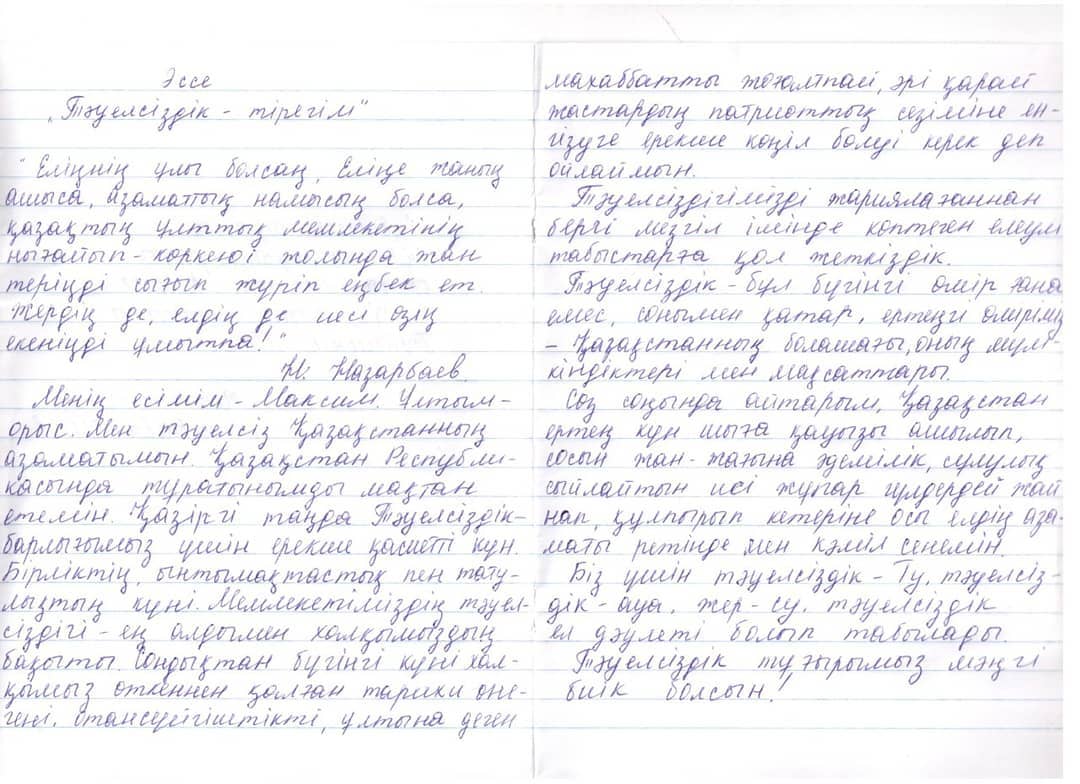 Эссе
„Тәуелсіздік - тірегім"
"Еліңнің ұлы болсаң, Еліңе жаның
ашыса, азаматтық намысың болса,
қазақтың ұлттық мемлекетінің
нығайып - көркеюі жолында жан
теріңді сығып жүріп еңбек ет.
Жердің де, елдің де иесі өзің
екеніңді ұмытпа!"
Н. Назарбаев.
Менің есімім - Максим. Ұлтым-
орыс. Мен тәуелсіз Қазақстанның
азаматымын. Қазақстан Республи-
касында тұратынымды мақтан
етемін. Қазіргі таңда Тәуелсіздік-
барлығымыз үшін ерекше қасиетті күн.
Бірліктің, ынтымақтастық пен тату-
лықтың күні. Мемлекетіміздің тәуел-
сіздігі - ең алдымен халқымыздың
бақыты. Сондықтан бүгінгі күні хал-
қымыз өткеннен қалған тарихи өне-
гені, отансүйгіштікті, ұлтына деген
махаббатты жоғалтпай, әрі қарай
жастардың патриоттық сезіміне ен-
гізуге ерекше көңіл бөлуі керек деп
ойлаймын.
Тәуелсіздігімізді жариялағаннан
бергі мезгіл ішінде көптеген елеулі
табыстарға қол жеткіздік.
Тәуелсіздік - бұл бүгінгі өмір ғана
емес, сонымен қатар, ертеңгі өміріміз
- Қазақстанның болашағы, оның мүм-
кіндіктері мен мақсаттары.
Сөз соңында айтарым, Қазақстан
ертең күн шыға қауызы ашылып,
сосын жан-жағына әдемілік, сұлулық
сыйлайтын исі жұпар гүлдердей жай
нап, құлпырып кетеріне осы елдің аза-
маты ретінде мен кәміл сенемін.
Біз үшін тәуелсіздік - Ту, тәуелсіз-
дік - ауа, жер - су, тәуелсіздік
ел дәулеті болып табылады.
Тәуелсіздік тұғырымыз мәңгі
биік болсын!